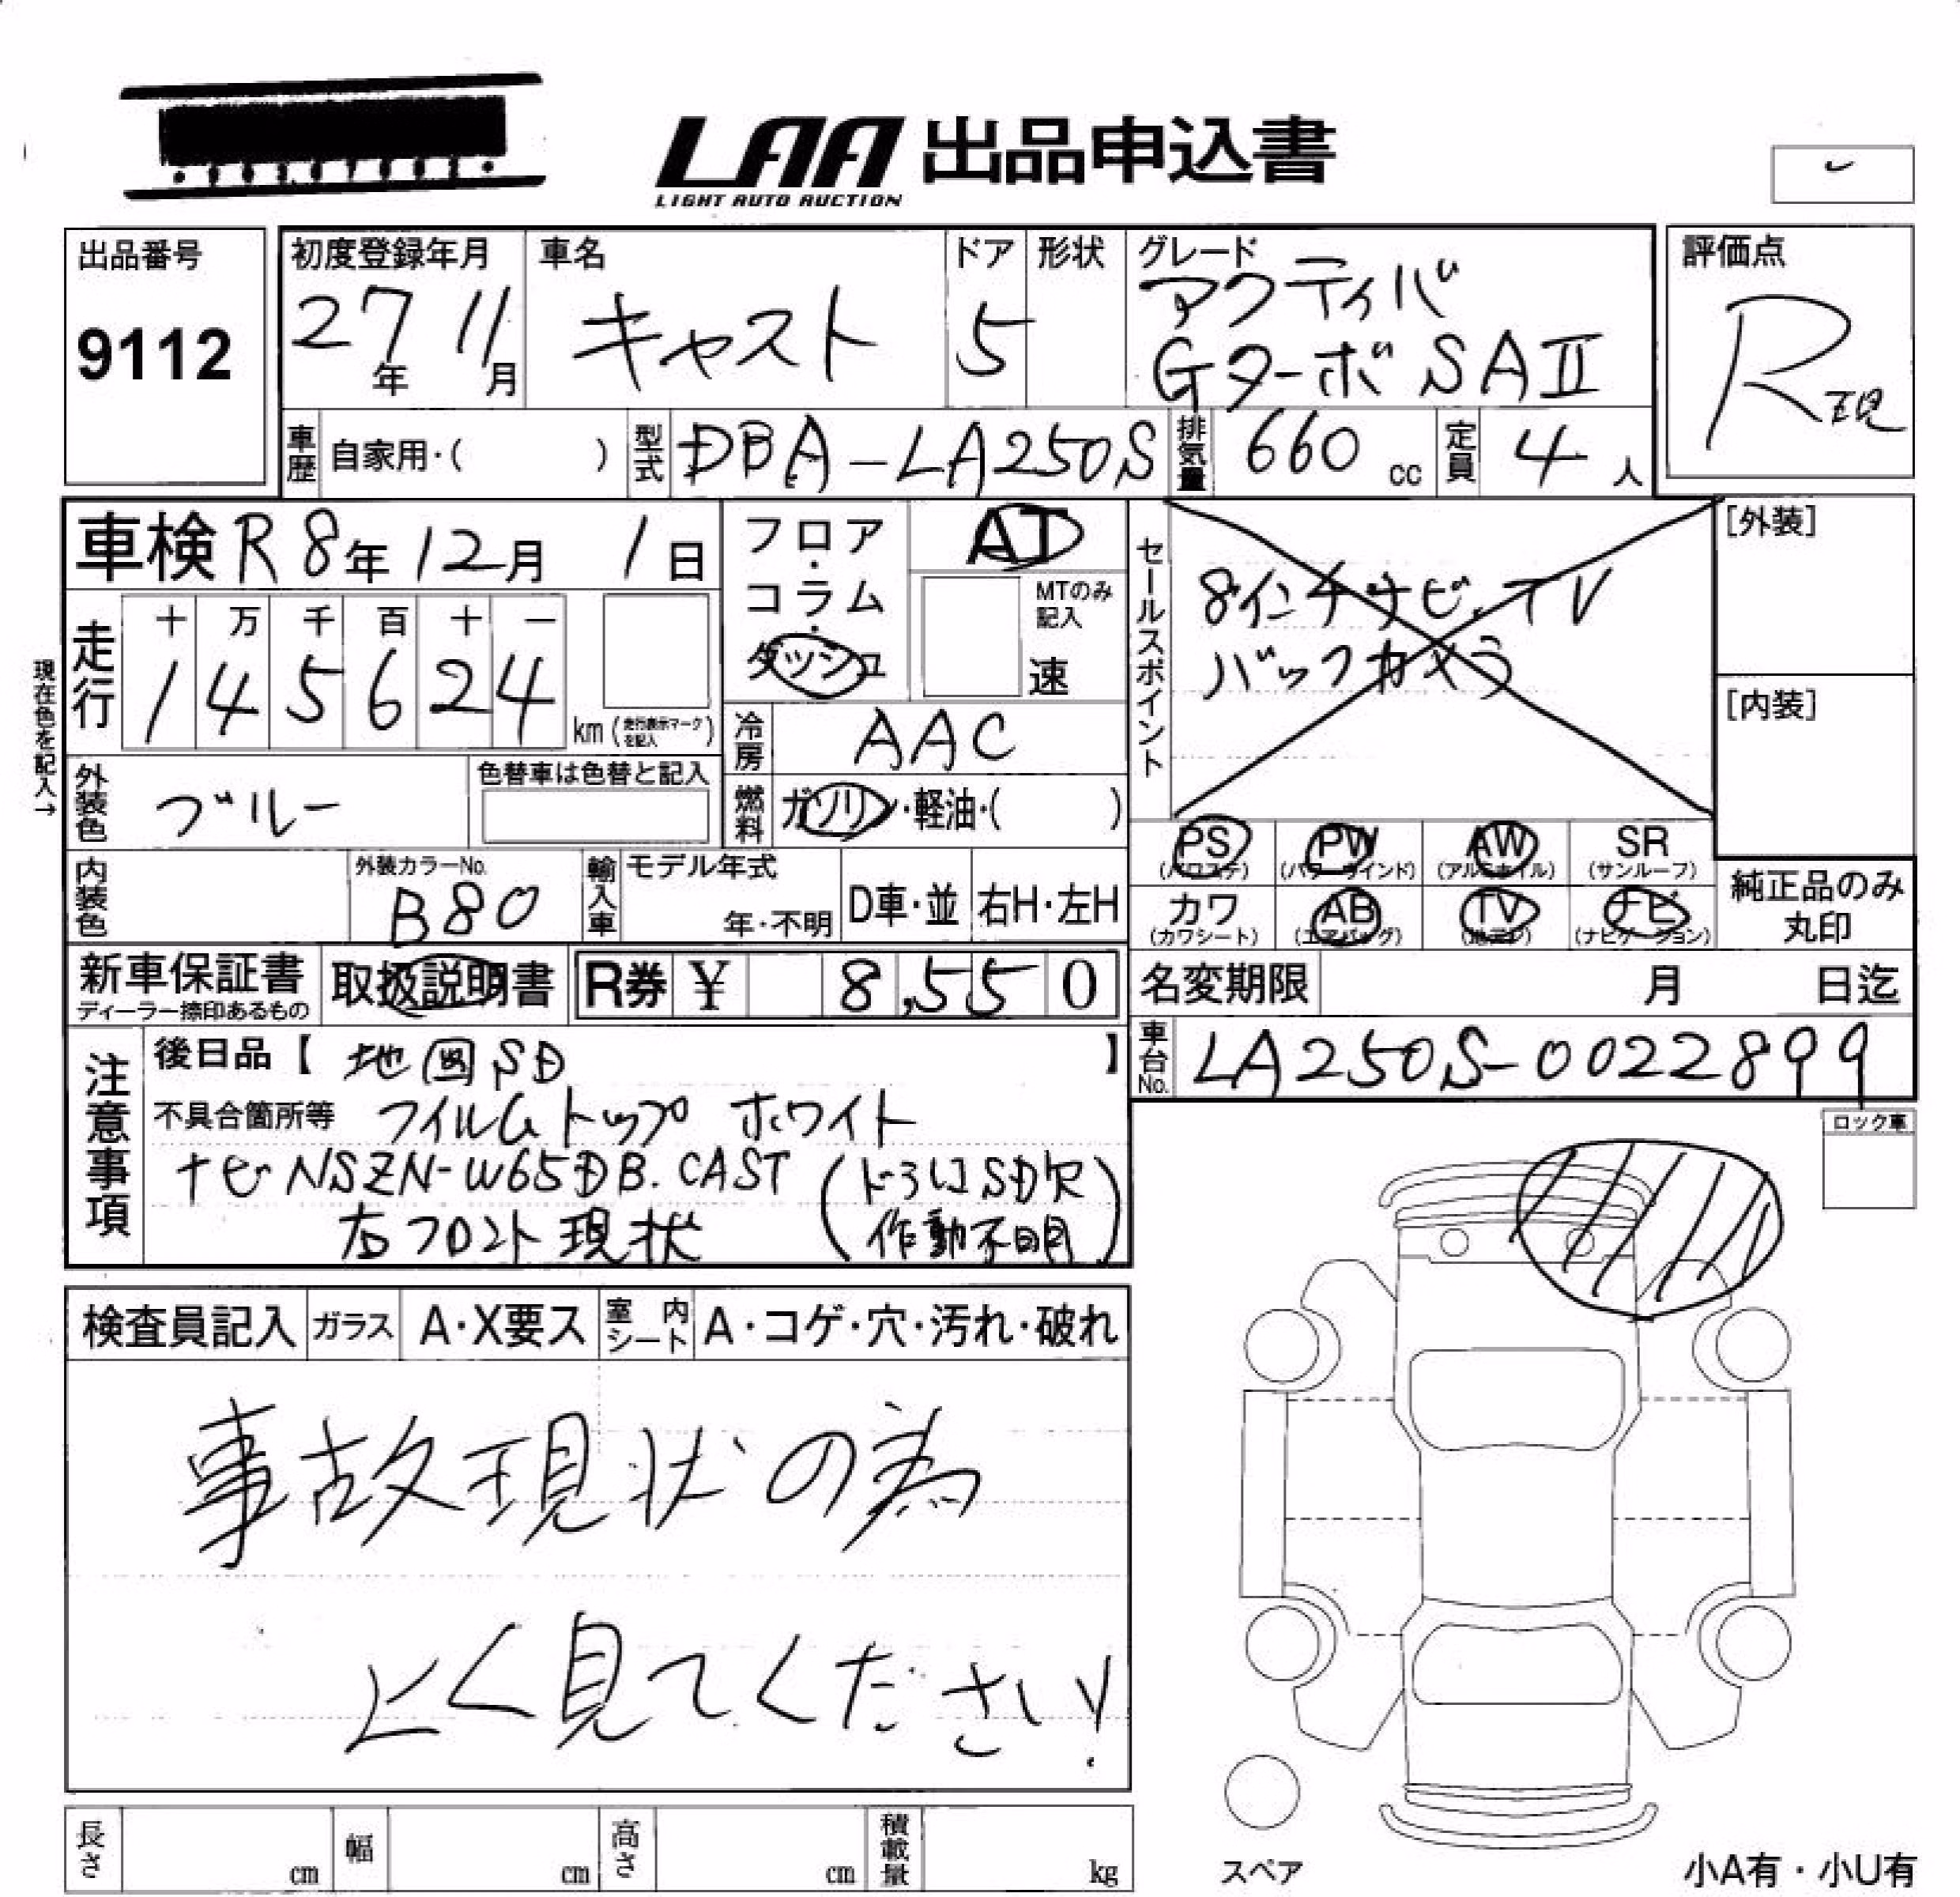 LAA 出品申込書
LIGHT AUTO AUCTION
出品番号
9112
初度登録年月
27年 11月
車名
キャスト
ドア
5
形状
グレード
アクティバ
Gターボ SAⅡ
評価点
R現
車歴 自家用・( )
型式 DBA-LA250S
排気量 660 cc
定員 4 人
車検 R8年 12月 1日
フロア・コラム・ダッシュ
AT
MTのみ記入
速
セールスポイント
8インチナビ.TV
バックカメラ
[外装]
[内装]
現在色を記入→
走行
十 万 千 百 十 一
1 4 5 6 2 4
km (走行表示マークを記入)
冷房 AAC
外装色 ブルー
色替車は色替と記入
燃料 ガソリン・軽油・( )
PS (パワステ)
PW (パワーウインド)
AW (アルミホイル)
SR (サンルーフ)
カワ (カワシート)
AB (エアバッグ)
TV (地デジ)
ナビ (ナビゲーション)
純正品のみ丸印
内装色
外装カラーNo. B80
輸入車 モデル年式
年・不明
D車・並
右H・左H
新車保証書
ディーラー捺印あるもの
取扱説明書
R券 ¥ 8,550
名変期限 月 日迄
車台No. LA250S-0022899
注意事項
後日品【 地図SD 】
不具合箇所等 フイルムトップ ホワイト
ナビ NSZN-W65DB.CAST (ドラレコSD欠
右フロント現状 作動不明)
ロック車
検査員記入
ガラス A・X要ス
室内シート A・コゲ・穴・汚れ・破れ
事故現状の為
よく見てください!
長さ cm
幅 cm
高さ cm
積載量 kg
スペア
小A有・小U有